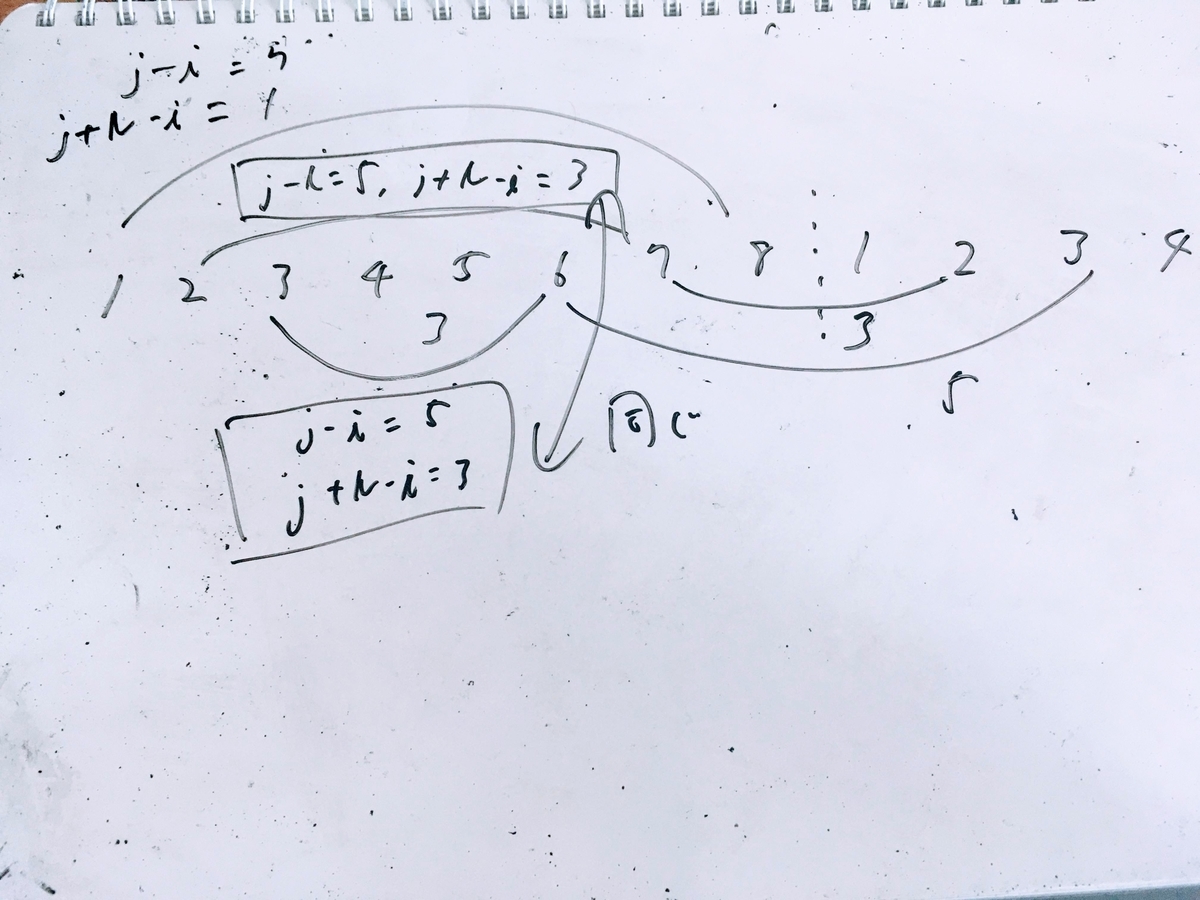 j-i = 7
j+N-i = 1
j-i=5, j+N-i=3
1 2 3 4 5 6 7 8 1 2 3 4
3 3
5
j-i = 5
同じ
j+N-i=3